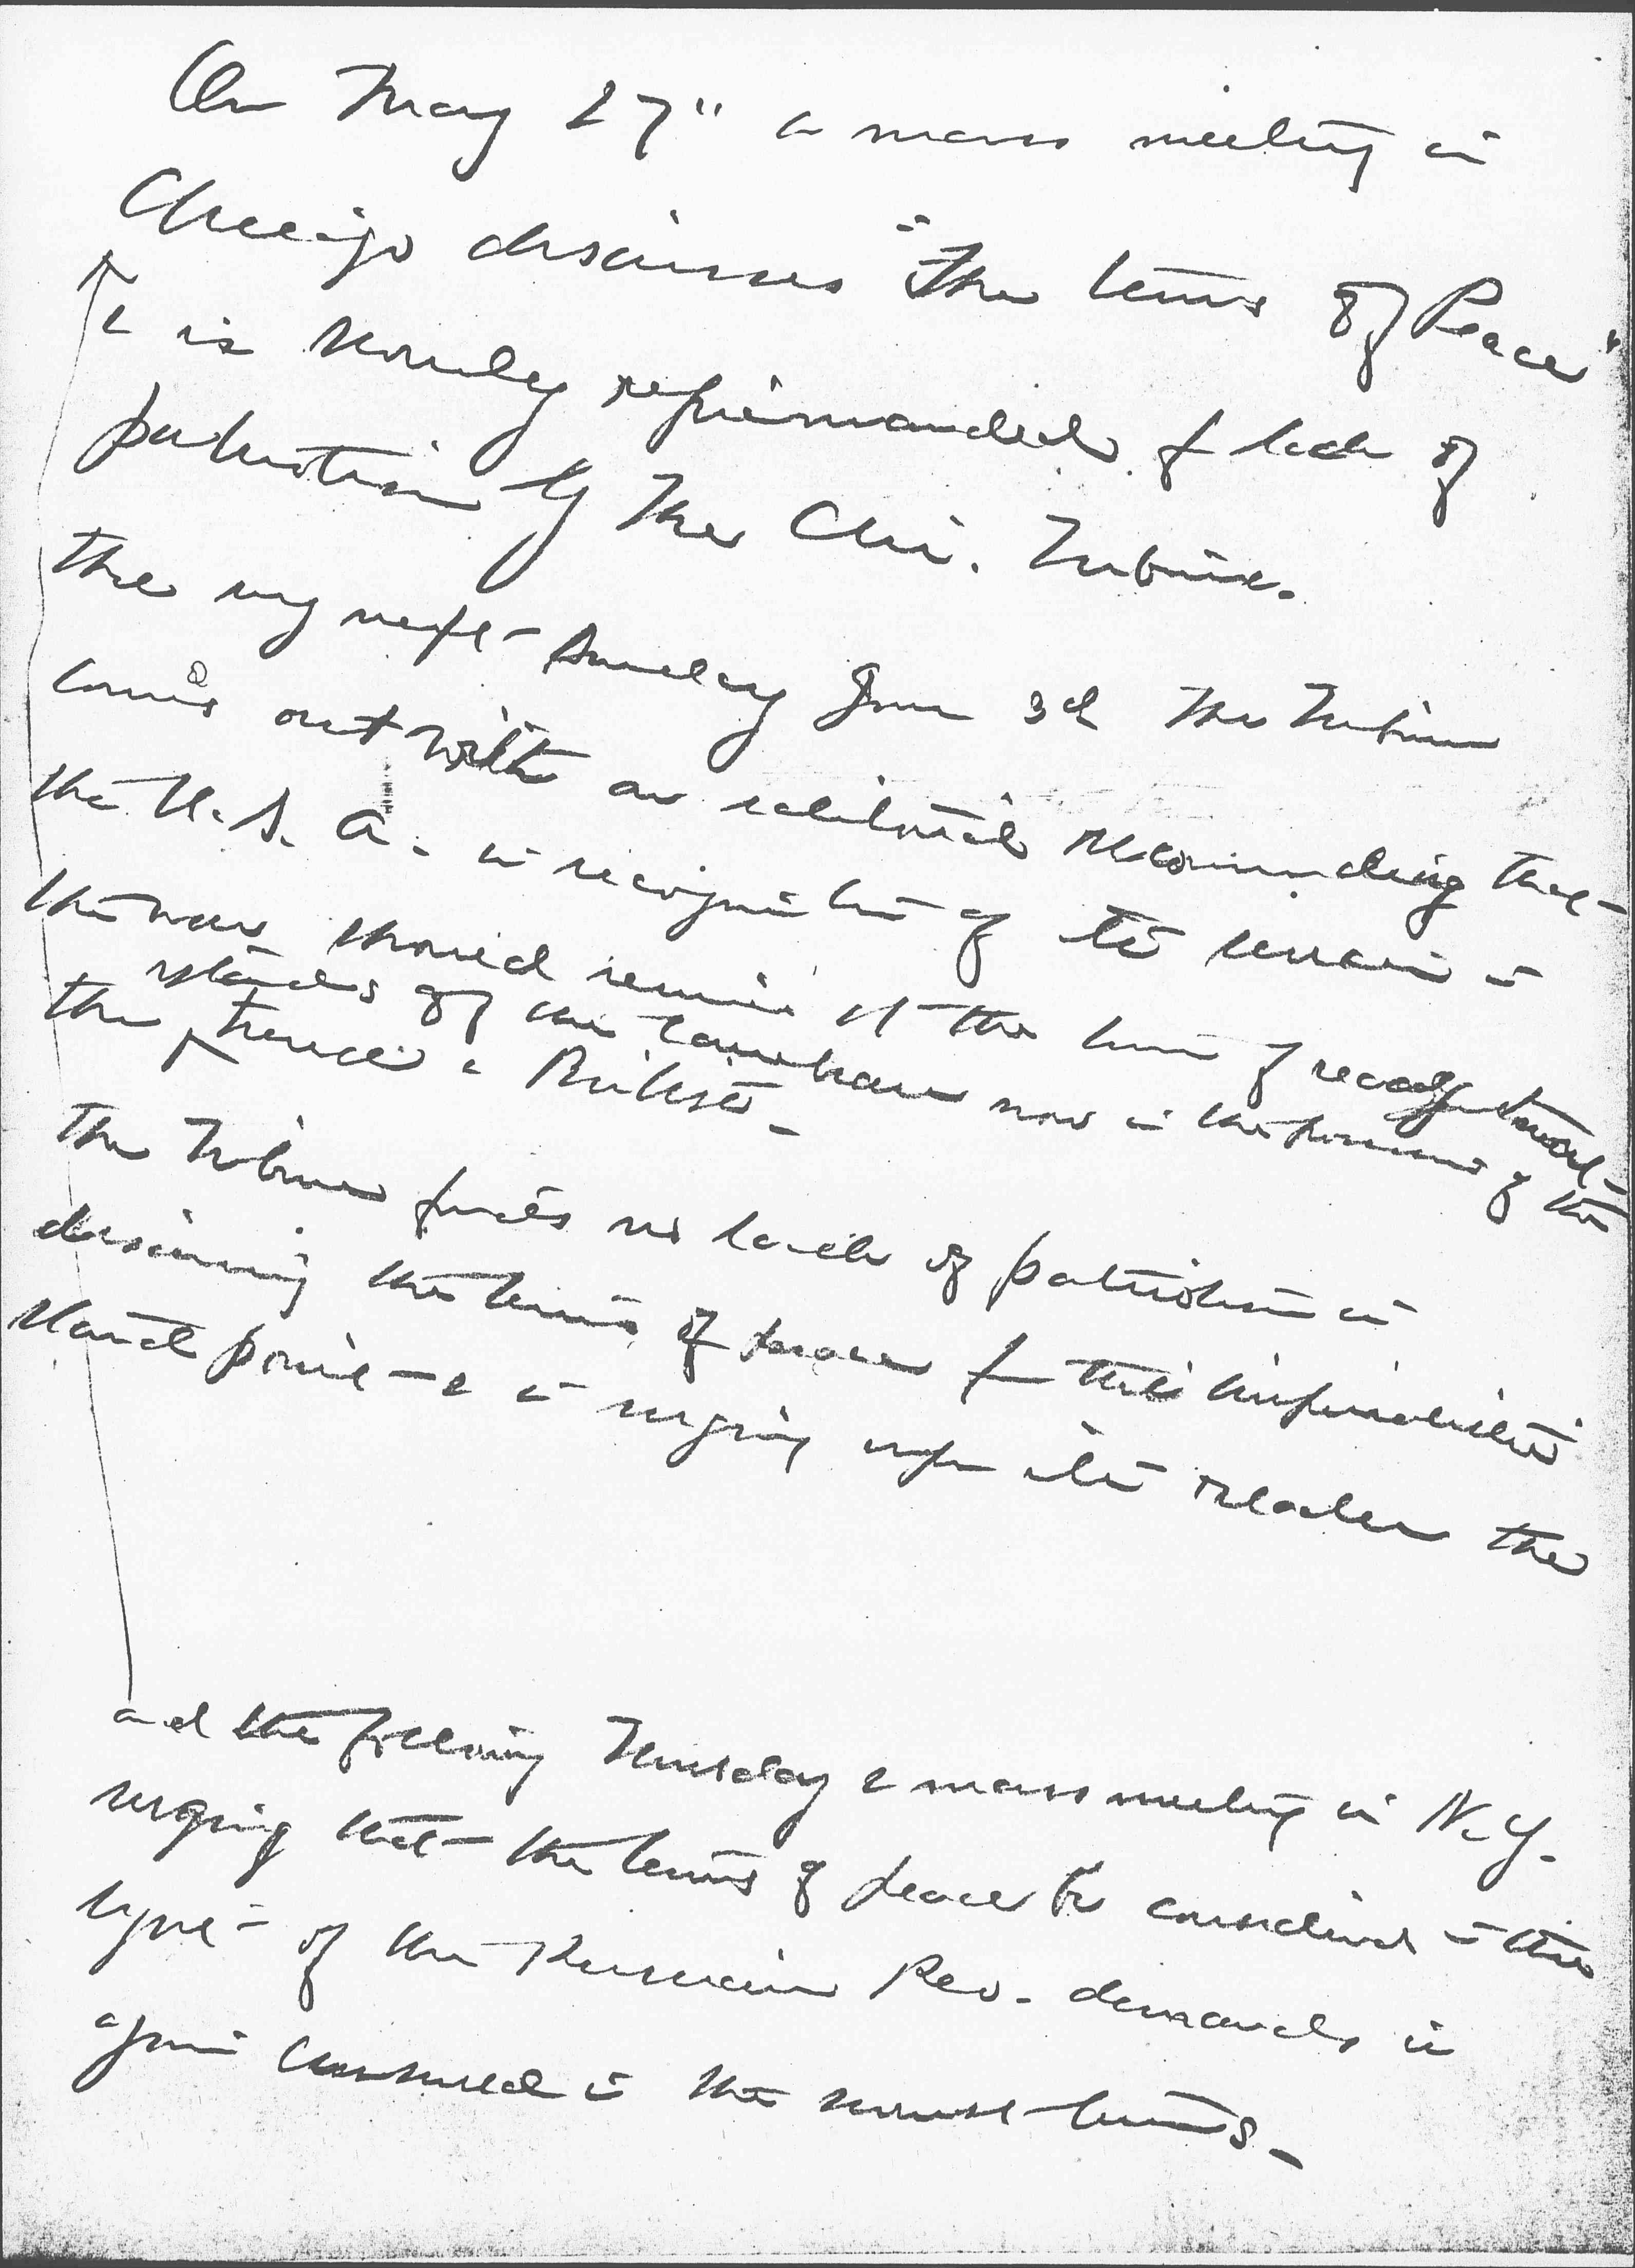 On May 27" a mass meeting in
Chicago discusses "The terms of Peace"
& is soundly reprimanded f lack of
patriotism by The Chi. Tribune.
The very next Sunday June 3d The Tribune
comes out with an editorial recommending that
the U.S.A. in recognition of its service in
the war should remind at the time of recog
islands of the Caribbean now in the possession of the
the French & British -
The Tribune finds no lack of patriotism in
discussing the terms of peace from this imperialistic
stand point & in urging upon its readers the
and the following Thursday a mass meeting in N.Y.
urging that the terms of peace be considered in the
light of the Russian Rev. demands is
again censured in the same terms -